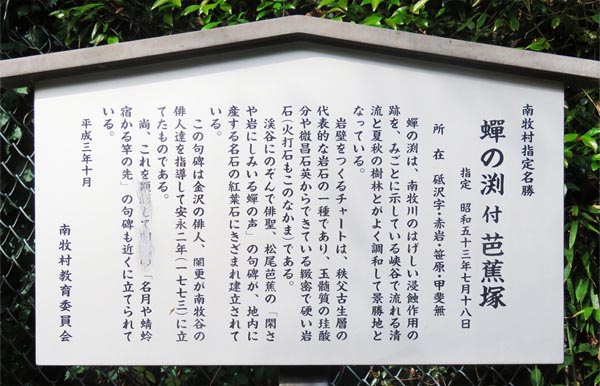 南牧村指定名勝
蟬の渕 付 芭蕉塚
指定 昭和五十三年七月十八日
所在 砥沢字・赤岩・笹原・甲斐無
蟬の渕は、南牧川のはげしい浸蝕作用の
跡を、みごとに示している峡谷で流れる清
流と夏秋の樹林とがよく調和して景勝地と
なっている。
岩壁をつくるチャートは、秩父古生層の
代表的な岩石の一種であり、玉髄質の珪酸
分や微昌石英からできている緻密で硬い岩
石(火打石もこのなかま)である。
渓谷にのぞんで俳聖、松尾芭蕉の「閑さ
や岩にしみいる蟬の声」の句碑が、地内に
産する名石の紅葉石にきざまれ建立されて
いる。
この句碑は金沢の俳人、闌更が南牧谷の
俳人達を指導して安永二年(一七七三)に立
てたものである。
尚、これを して 「名月や蜻蛉
宿かる竿の先」の句碑も近くに立てられて
いる。
平成三年十月
南牧村教育委員会